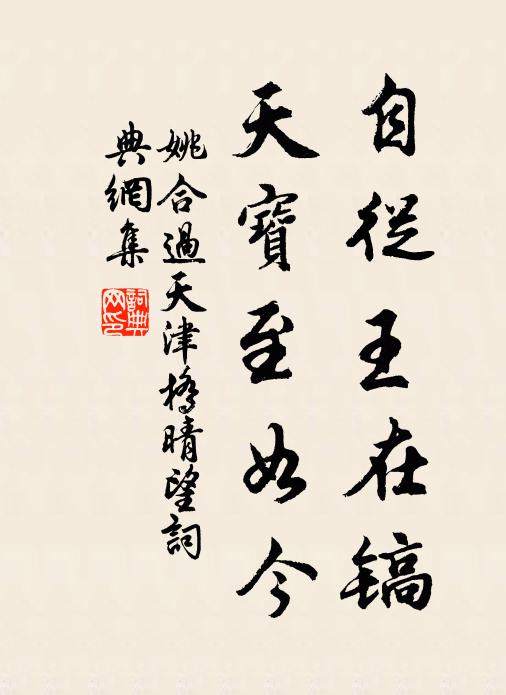 自從王在镐
天寶至如今
姚合過天津橋晴望詞
典網集
詞典網印